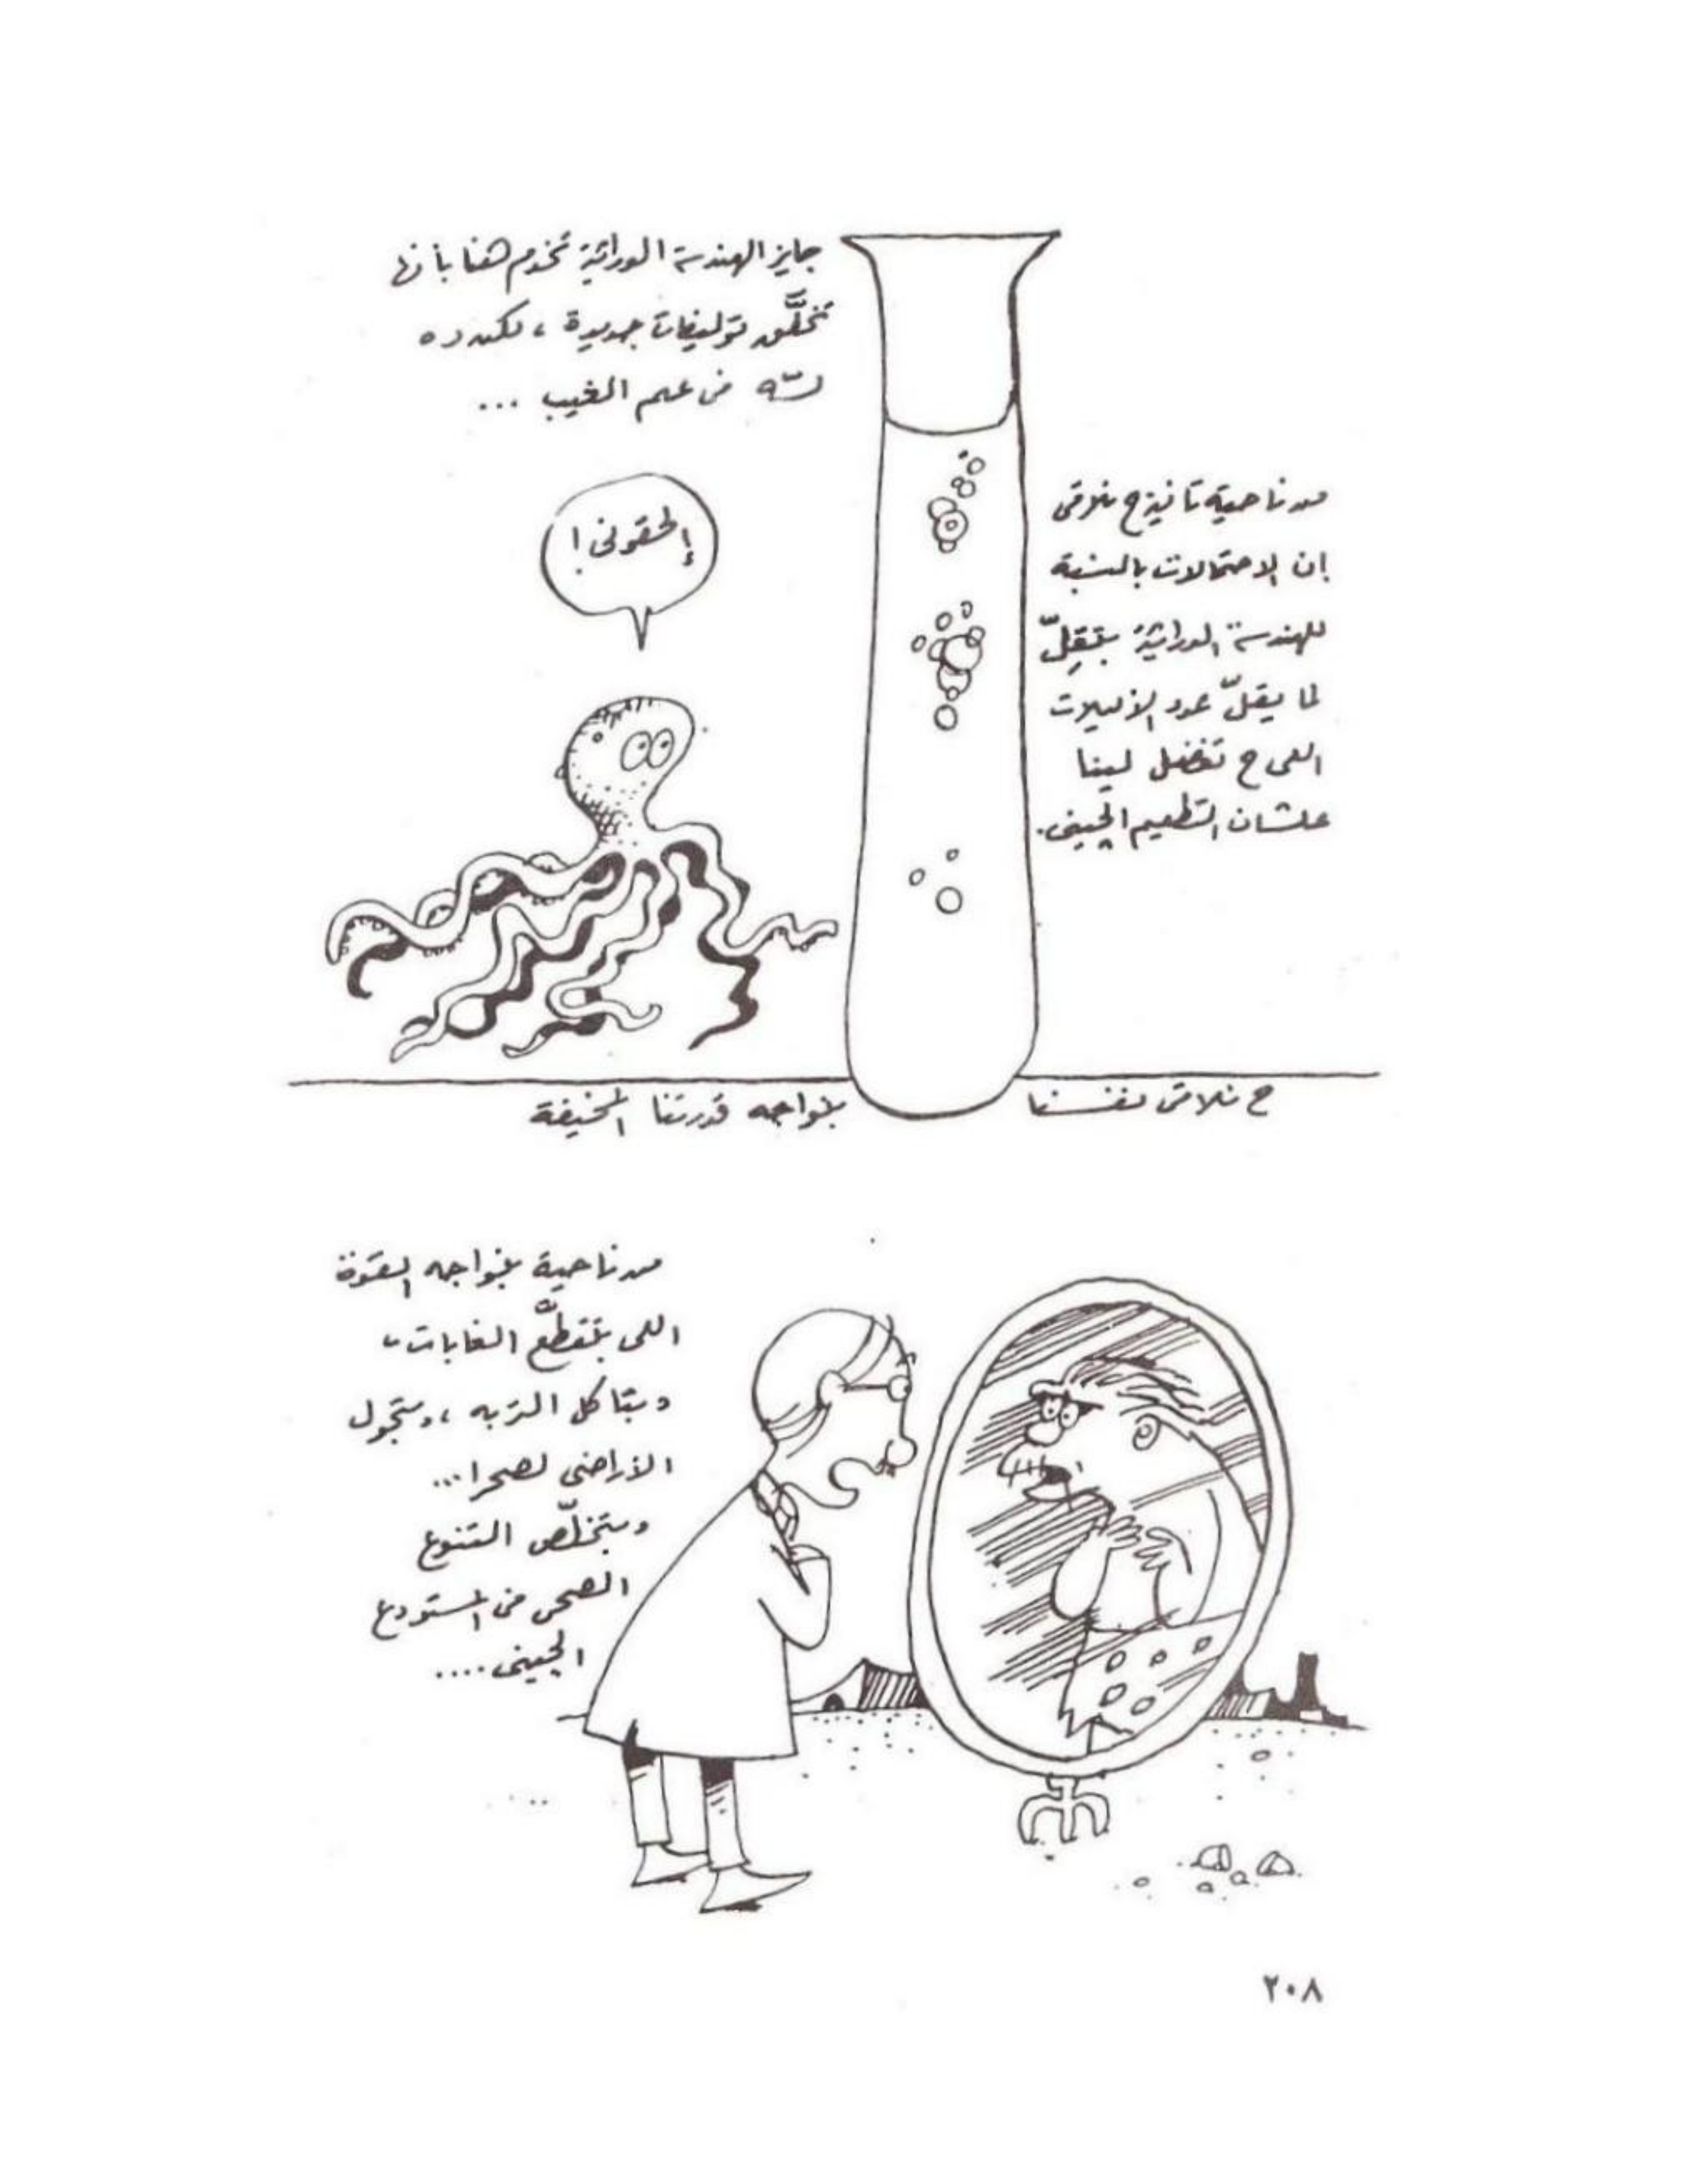 جايز الهندسة الوراثية تخدم هنا بأنها
تخلَّق توليفات جديدة، لكن ده
لسّه فى علم الغيب ...
إلحقونى!
من ناحية تانية ح نلاقى
إن الاحتمالات بالنسبة
للهندسة الوراثية بتقِلّ
لما يقلّ عدد الأليلات
اللى ح تفضل لينا
علشان التطعيم الچينى.
ح نلاقى نفسنا
بنواجه قدرتنا المخيفة
من ناحية بنواجه القوة
اللى بتقطَّع الغابات،
وبتآكل التربه، وبتحول
الأراضى لصحرا...
وبتخلّص التنوع
الصحى فى المستودع
الچينى....
٢٠٨